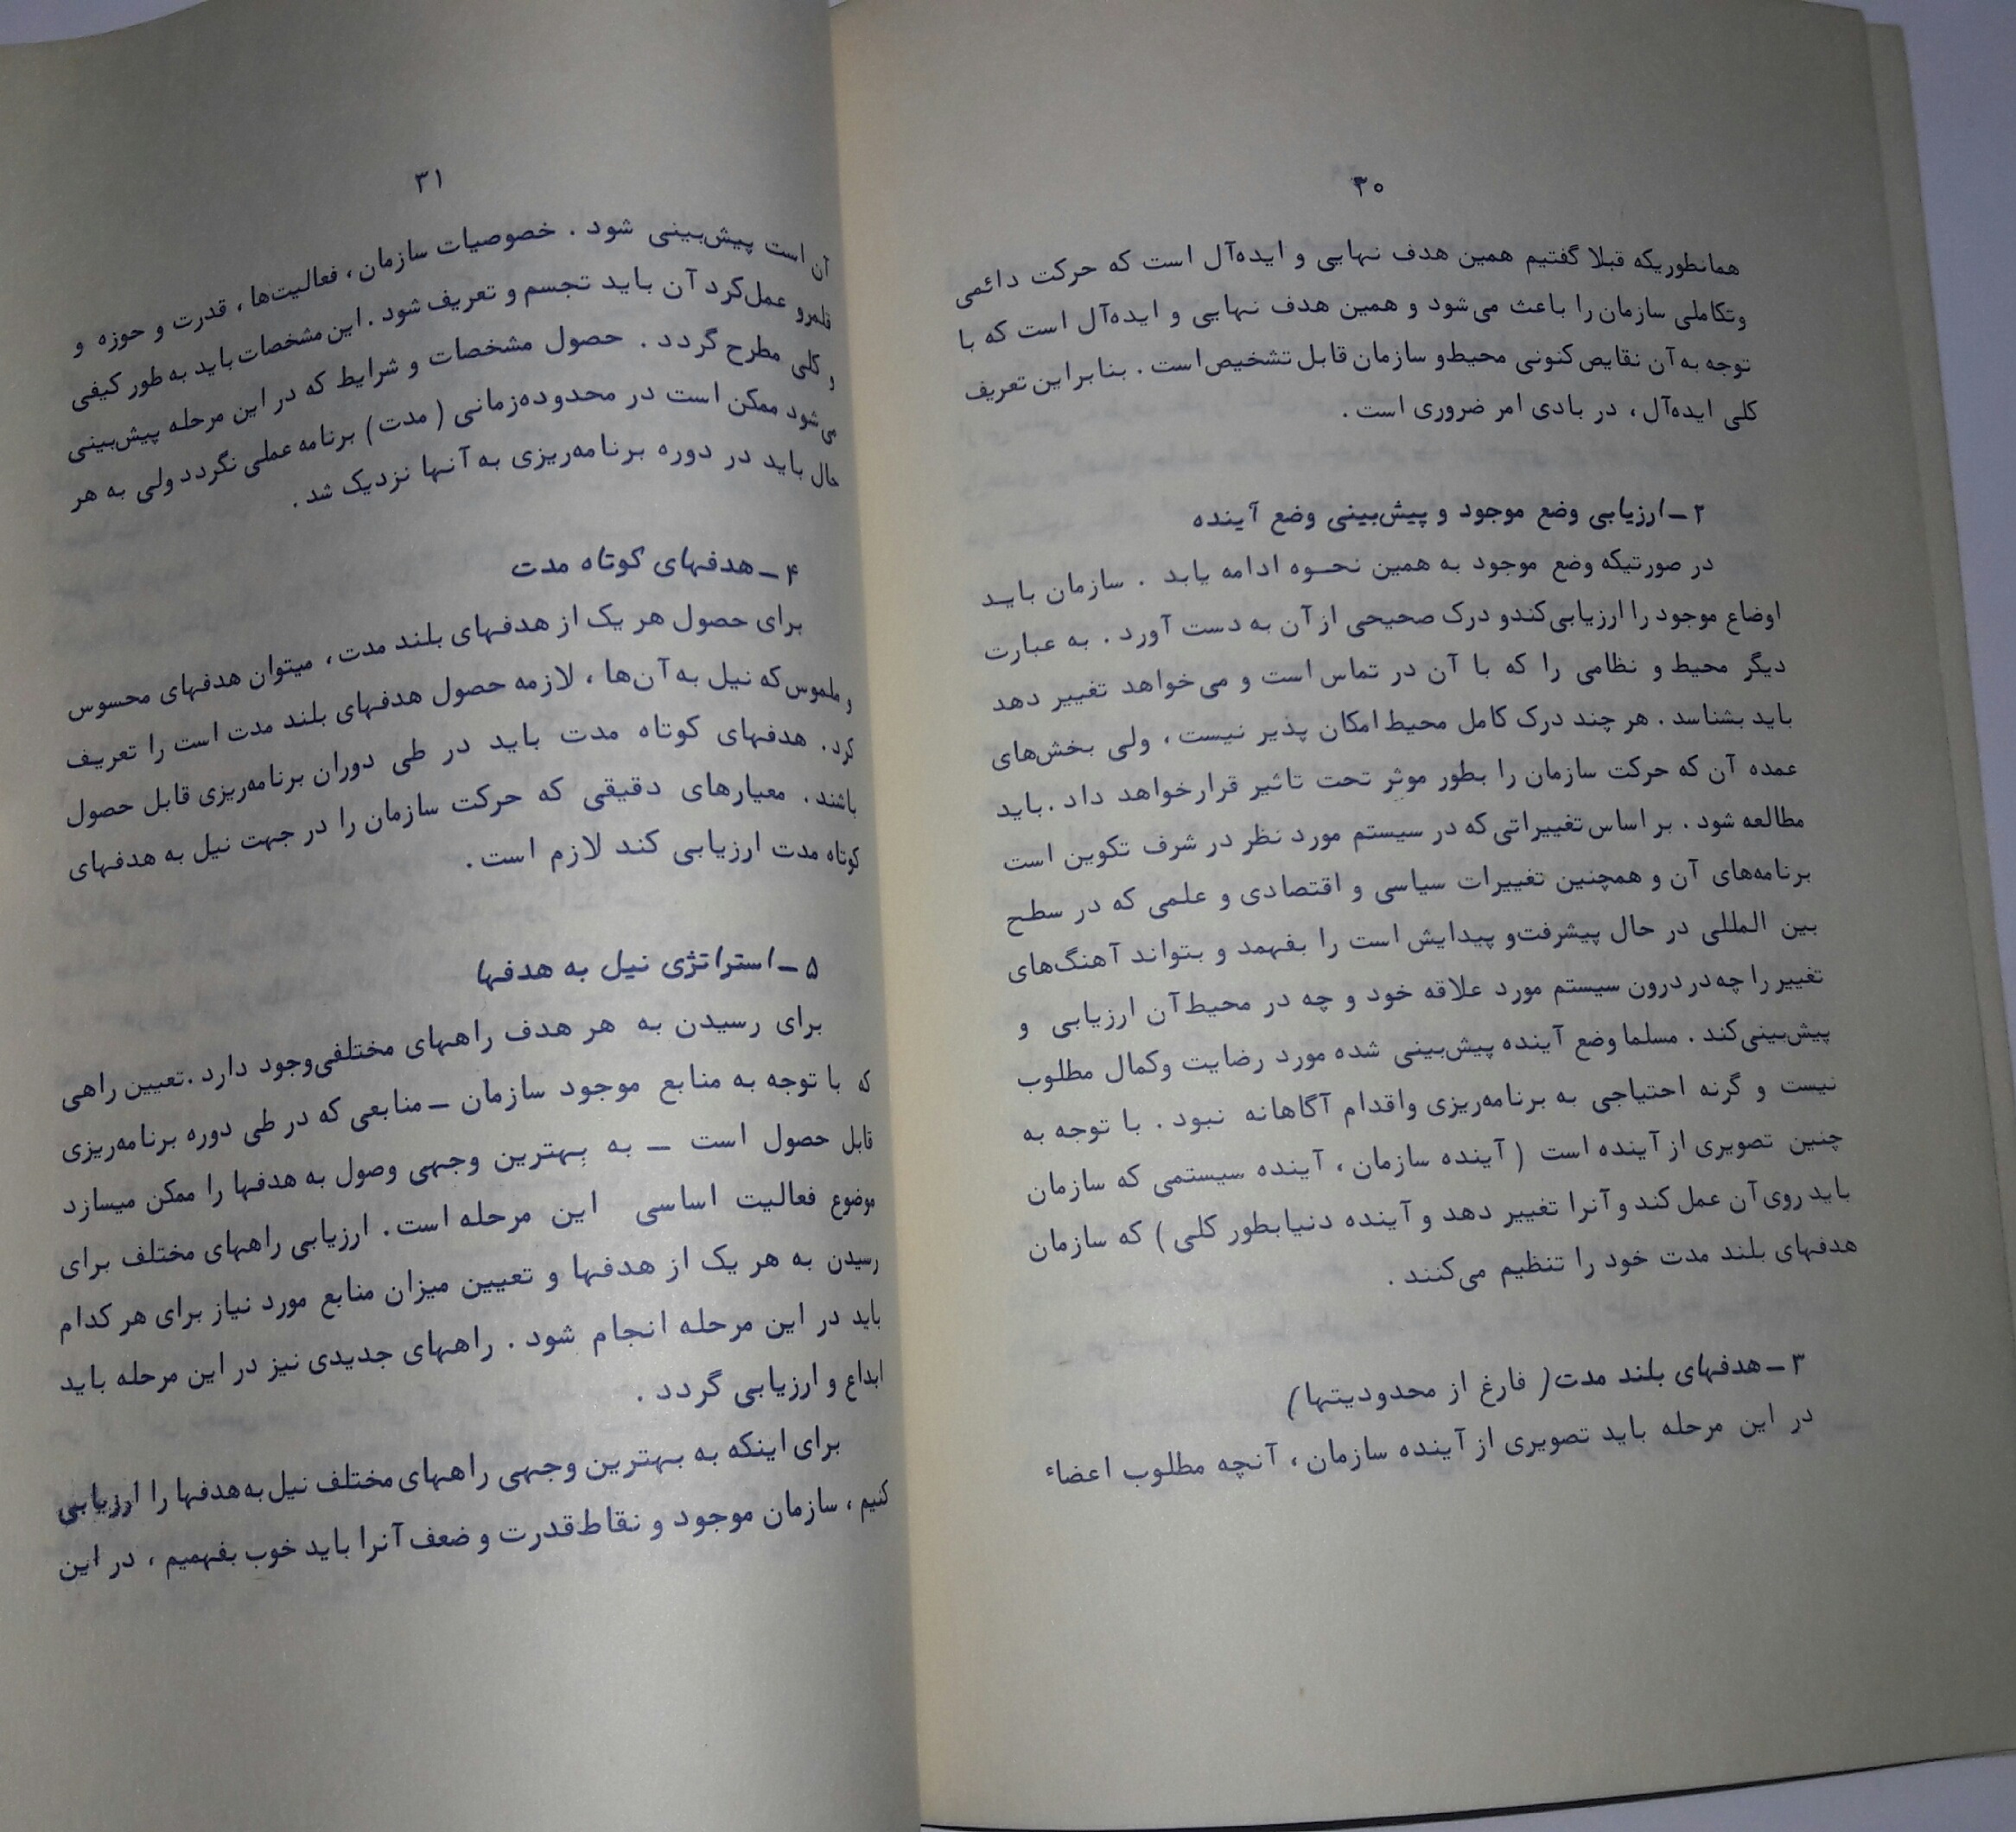 ۳۰
همانطوریکه قبلا گفتیم همین هدف نهایی و ایده‌آل است که حرکت دائمی
وتکاملی سازمان را باعث می‌شود و همین هدف نهایی و ایده‌آل است که با
توجه به آن نقایص کنونی محیط و سازمان قابل تشخیص است . بنابراین تعریف
کلی ایده‌آل ، در بادی امر ضروری است .
۲ـ ارزیابی وضع موجود و پیش‌بینی وضع آینده
در صورتیکه وضع موجود به همین نحوه ادامه یابد . سازمان باید
اوضاع موجود را ارزیابی کند و درک صحیحی از آن به دست آورد . به عبارت
دیگر محیط و نظامی را که با آن در تماس است و می‌خواهد تغییر دهد
باید بشناسد . هر چند درک کامل محیط امکان پذیر نیست ، ولی بخش‌های
عمده آن که حرکت سازمان را بطور موثر تحت تاثیر قرار خواهد داد . باید
مطالعه شود . بر اساس تغییراتی که در سیستم مورد نظر در شرف تکوین است
برنامه‌های آن و همچنین تغییرات سیاسی و اقتصادی و علمی که در سطح
بین المللی در حال پیشرفت و پیدایش است را بفهمد و بتواند آهنگ‌های
تغییر را چه در درون سیستم مورد علاقه خود و چه در محیط آن ارزیابی و
پیش‌بینی کند . مسلما وضع آینده پیش‌بینی شده مورد رضایت وکمال مطلوب
نیست و گرنه احتیاجی به برنامه‌ریزی واقدام آگاهانه نبود . با توجه به
چنین تصویری از آینده است ( آینده سازمان ، آینده سیستمی که سازمان
باید روی آن عمل کند و آنرا تغییر دهد و آینده دنیا بطور کلی ) که سازمان
هدفهای بلند مدت خود را تنظیم می‌کنند .
۳ـ هدفهای بلند مدت ( فارغ از محدودیتها )
در این مرحله باید تصویری از آینده سازمان ، آنچه مطلوب اعضاء
۳۱
آن است پیش‌بینی شود . خصوصیات سازمان ، فعالیت‌ها ، قدرت و حوزه و
قلمرو عمل‌کرد آن باید تجسم و تعریف شود . این مشخصات باید به طور کیفی
و کلی مطرح گردد . حصول مشخصات و شرایط که در این مرحله پیش‌بینی
می‌شود ممکن است در محدوده‌زمانی ( مدت ) برنامه عملی نگردد ولی به هر
حال باید در دوره برنامه‌ریزی به آنها نزدیک شد .
۴ـ هدفهای کوتاه مدت
برای حصول هر یک از هدفهای بلند مدت ، میتوان هدفهای محسوس
و ملموس که نیل به آن‌ها ، لازمه حصول هدفهای بلند مدت است را تعریف
کرد . هدفهای کوتاه مدت باید در طی دوران برنامه‌ریزی قابل حصول
باشند . معیارهای دقیقی که حرکت سازمان را در جهت نیل به هدفهای
کوتاه مدت ارزیابی کند لازم است .
۵ـ استراتژی نیل به هدفها
برای رسیدن به هر هدف راههای مختلفی وجود دارد . تعیین راهی
که با توجه به منابع موجود سازمان ـ منابعی که در طی دوره برنامه‌ریزی
قابل حصول است ـ به بهترین وجهی وصول به هدفها را ممکن میسازد
موضوع فعالیت اساسی این مرحله است . ارزیابی راههای مختلف برای
رسیدن به هر یک از هدفها و تعیین میزان منابع مورد نیاز برای هر کدام
باید در این مرحله انجام شود . راههای جدیدی نیز در این مرحله باید
ابداع و ارزیابی گردد .
برای اینکه به بهترین وجهی راههای مختلف نیل به هدفها را ارزیابی
کنیم ، سازمان موجود و نقاط قدرت و ضعف آنرا باید خوب بفهمیم ، در این